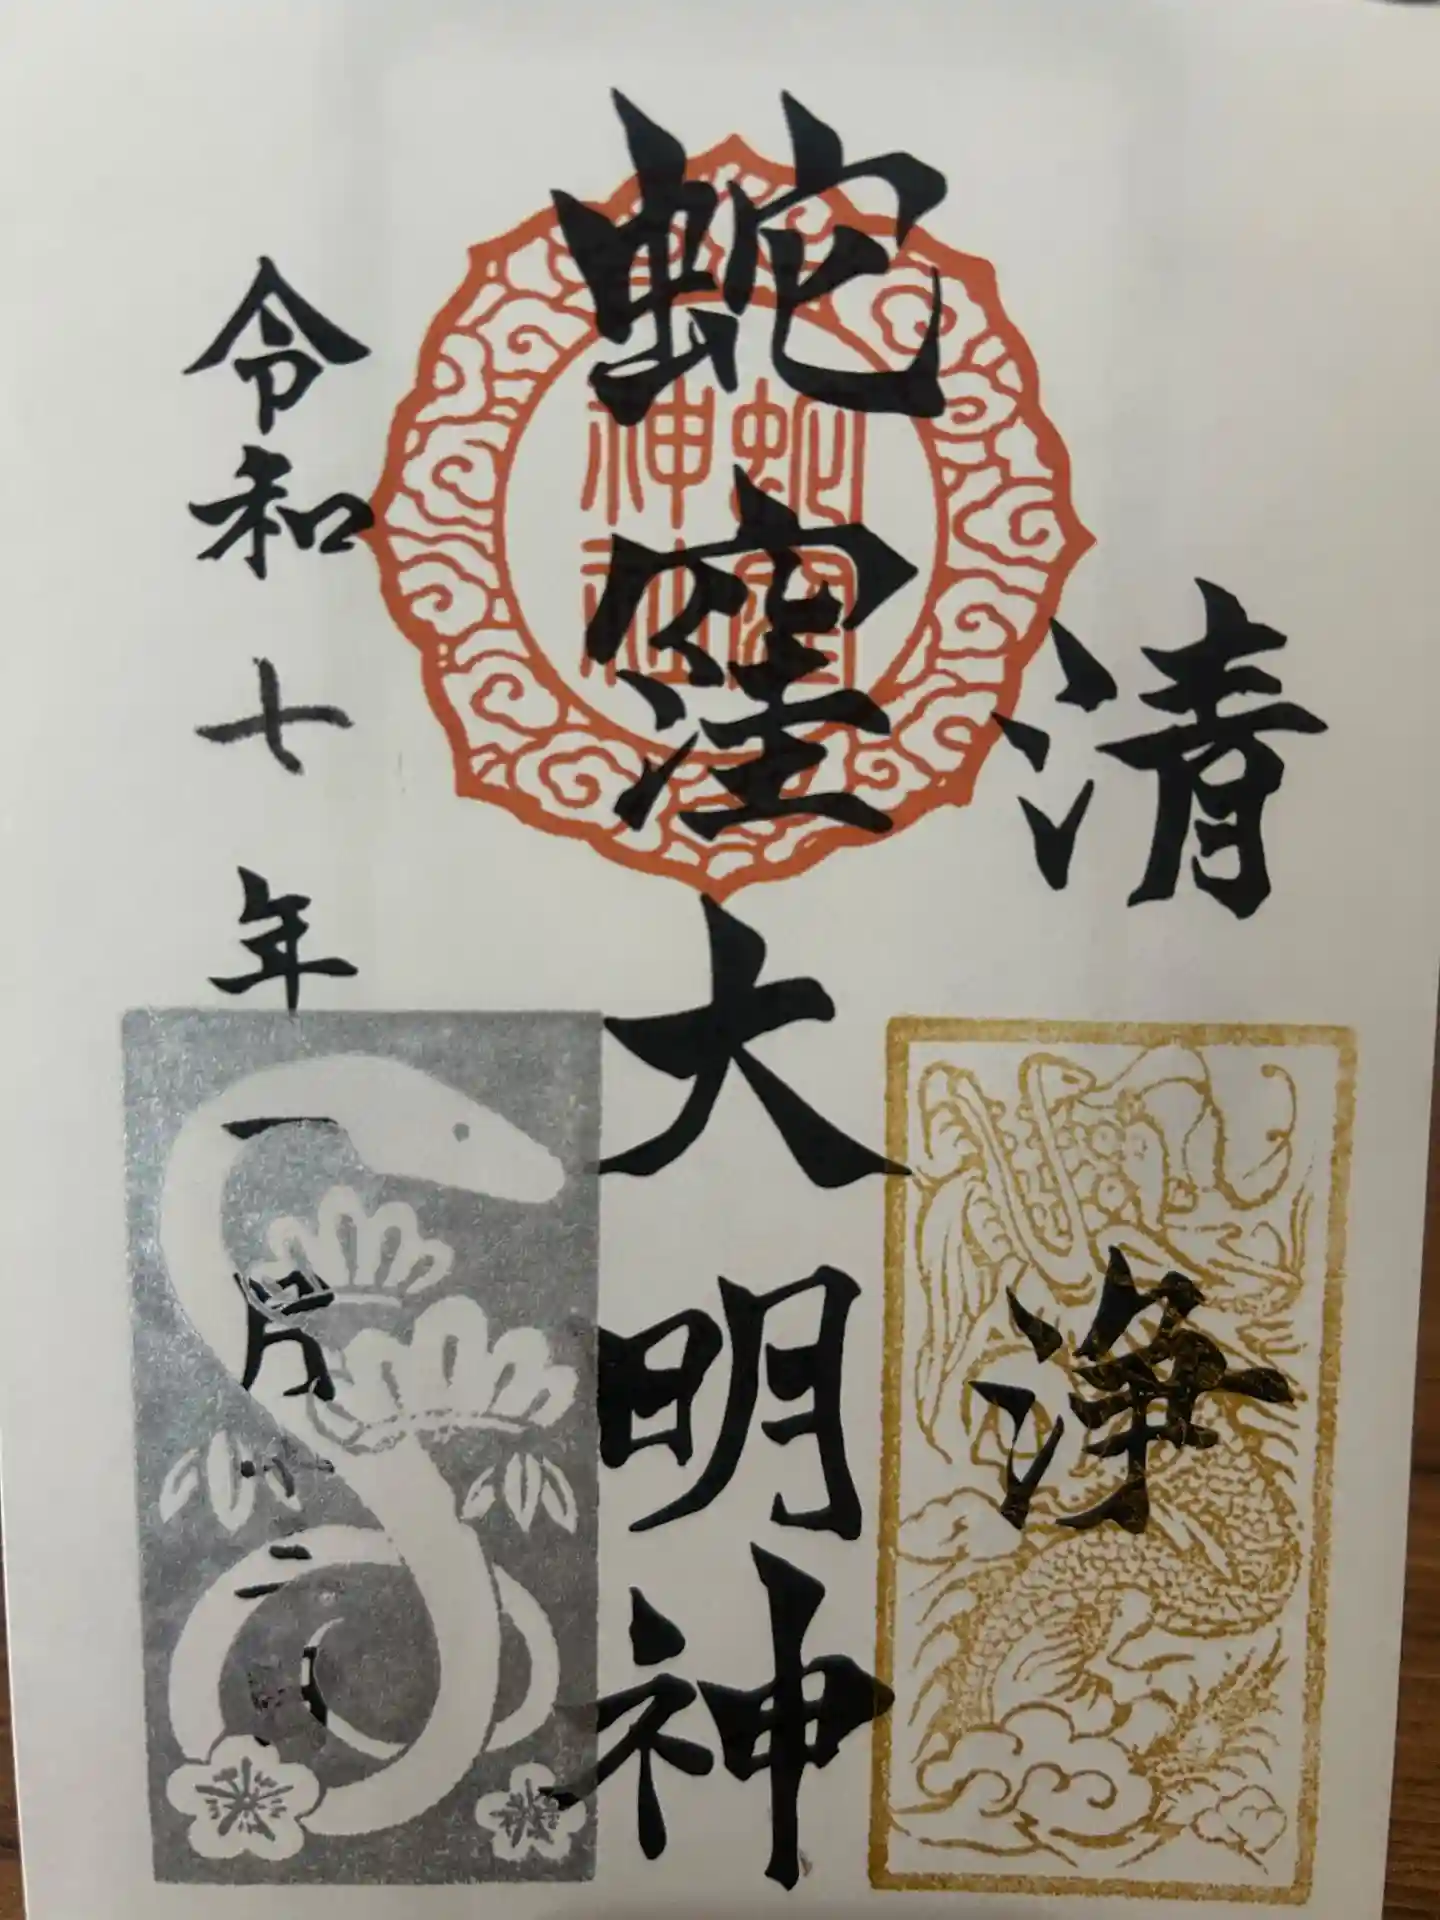 清浄
蛇窪大明神
蛇窪
神社
令和七年一月二日